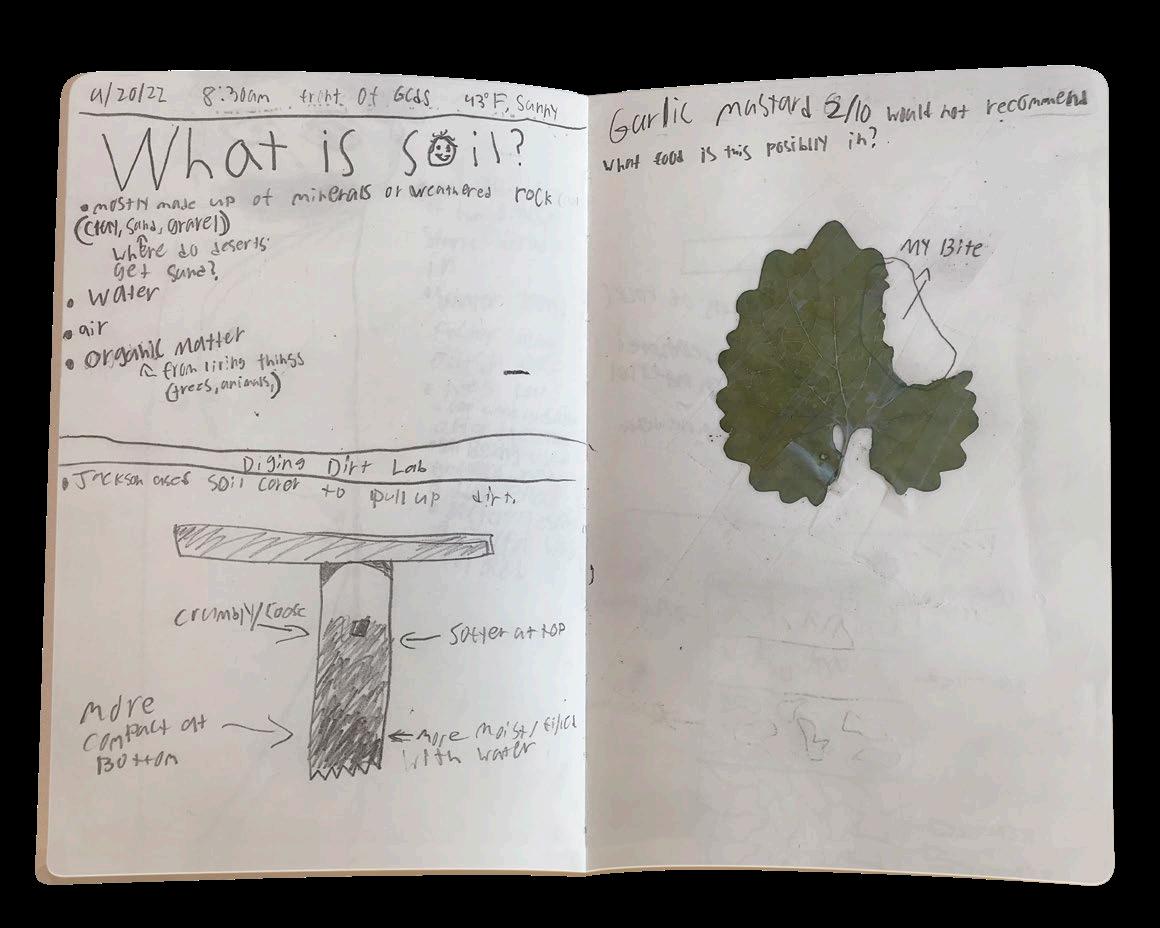 4/20/22 8:30am front of GCDS 43°F, Sunny
What is soil?
• mostly made up of minerals or weathered rock
(clay, sand, gravel)
where do deserts
get sand?
• Water
• air
• Organic Matter
from living things
(trees, animals,)
Diging Dirt Lab
• Jackson used soil corer to pull up dirt.
crumbly/loose
Softer at top
More
compact at
Bottom
more moist/filled
with water
Garlic mustard 2/10 would not recommend
what food is this posiblly in?
MY Bite